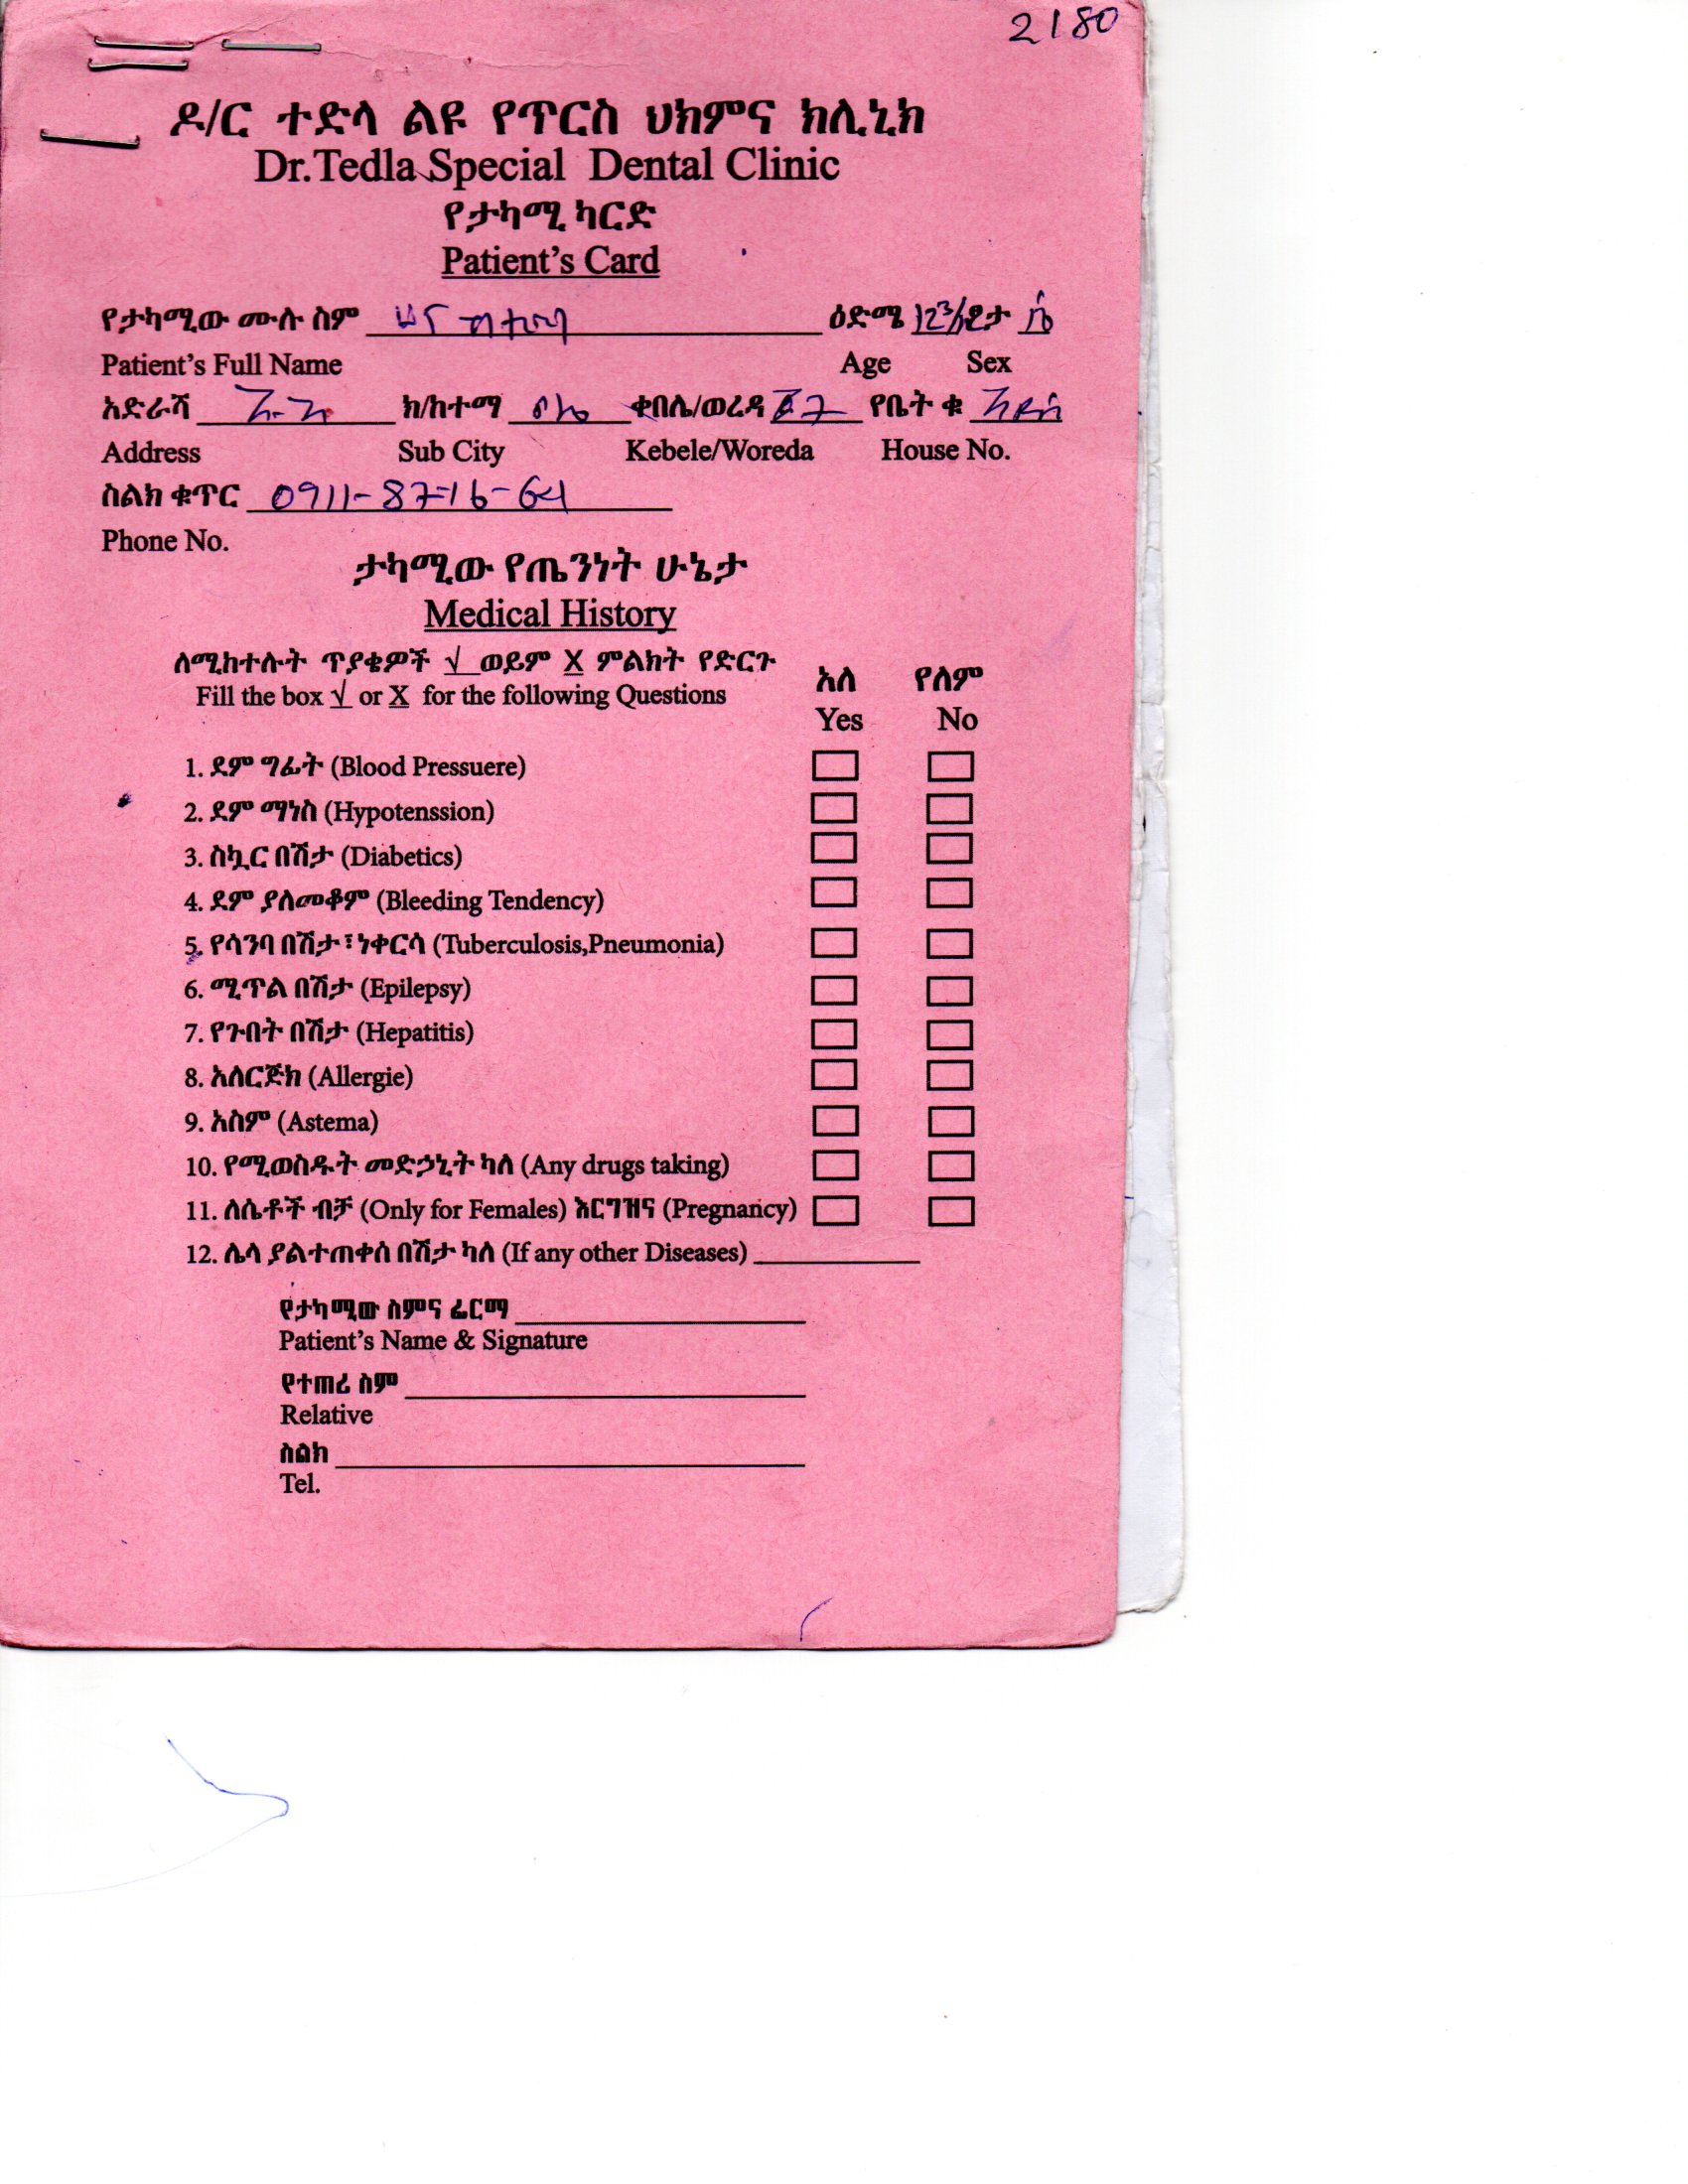 2180
ዶ/ር ተድላ ልዩ የጥርስ ህክምና ክሊኒክ
Dr.Tedla Special Dental Clinic
የታካሚ ካርድ
Patient's Card
የታካሚው ሙሉ ስም ዕድሜ ፆታ
Patient's Full Name Age Sex
አድራሻ አ.አ ክ/ከተማ ቦሌ ቀበሌ/ወረዳ የቤት ቁ አዲስ
Address Sub City Kebele/Woreda House No.
ስልክ ቁጥር 0911-87-16-64
Phone No.
ታካሚው የጤንነት ሁኔታ
Medical History
ለሚከተሉት ጥያቄዎች √ ወይም X ምልክት የድርጉ አለ የለም
Fill the box √ or X for the following Questions Yes No
1. ደም ግፊት (Blood Pressuere)
2. ደም ማነስ (Hypotenssion)
3. ስኳር በሽታ (Diabetics)
4. ደም ያለመቆም (Bleeding Tendency)
5. የሳንባ በሽታ፣ነቀርሳ (Tuberculosis,Pneumonia)
6. ሚጥል በሽታ (Epilepsy)
7. የጉበት በሽታ (Hepatitis)
8. አለርጅክ (Allergie)
9. አስም (Astema)
10. የሚወስዱት መድኃኒት ካለ (Any drugs taking)
11. ለሴቶች ብቻ (Only for Females) እርግዝና (Pregnancy)
12. ሌላ ያልተጠቀሰ በሽታ ካለ (If any other Diseases)
የታካሚው ስምና ፊርማ
Patient's Name & Signature
የተጠሪ ስም
Relative
ስልክ
Tel.